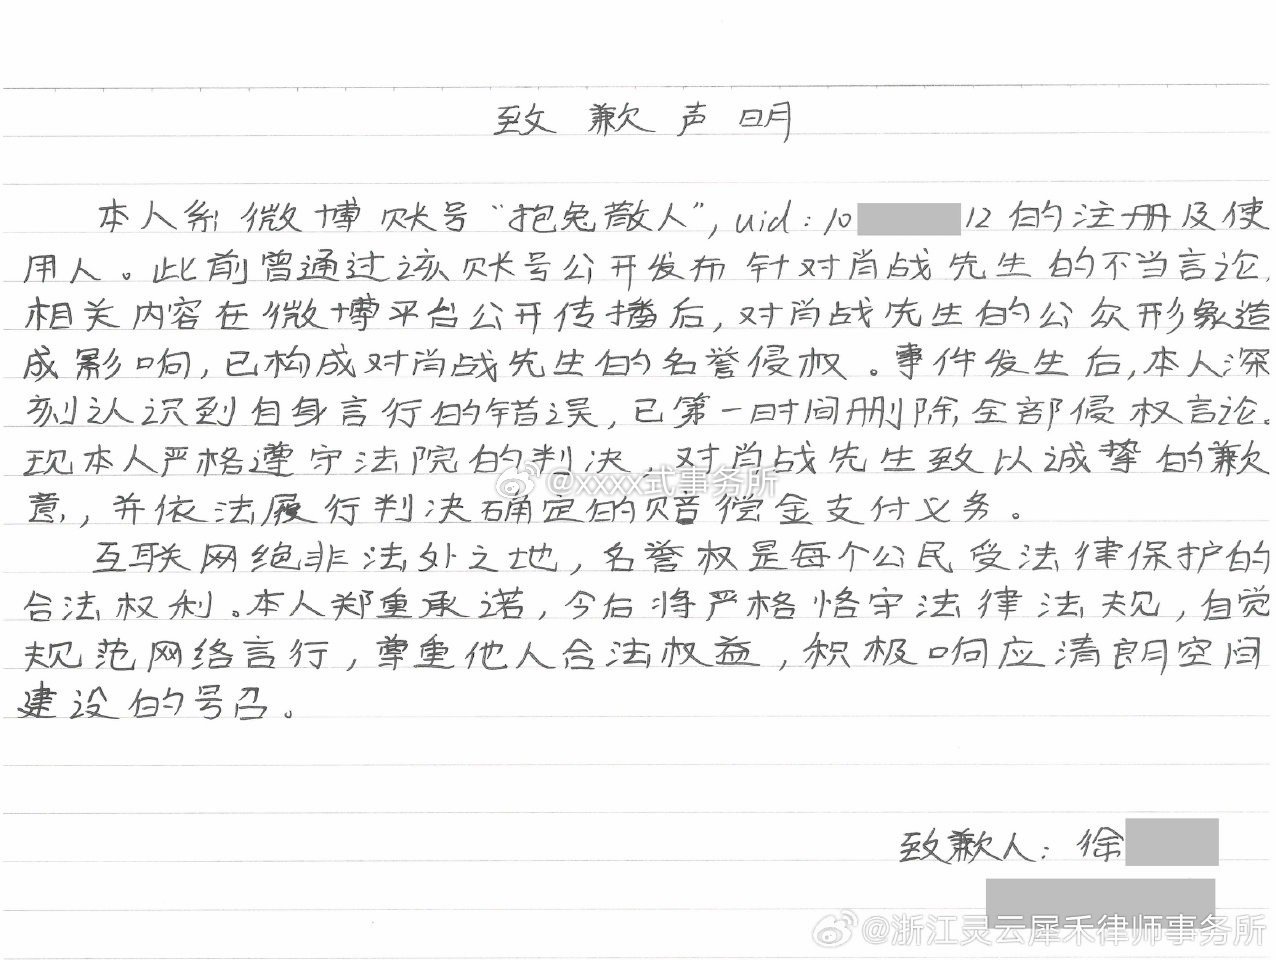 致歉声明
本人系微博账号“抱兔散人”，uid：10 12的注册及使
用人。此前曾通过该账号公开发布针对肖战先生的不当言论，
相关内容在微博平台公开传播后，对肖战先生的公众形象造
成影响，已构成对肖战先生的名誉侵权。事件发生后，本人深
刻认识到自身言行的错误，已第一时间删除全部侵权言论。
现本人严格遵守法院的判决，对肖战先生致以诚挚的歉
@xxxx式事务所
意，并依法履行判决确定的赔偿金支付义务。
互联网绝非法外之地，名誉权是每个公民受法律保护的
合法权利。本人郑重承诺，今后将严格恪守法律法规，自觉
规范网络言行，尊重他人合法权益，积极响应清朗空间
建设的号召。
致歉人：徐
@浙江灵云犀禾律师事务所